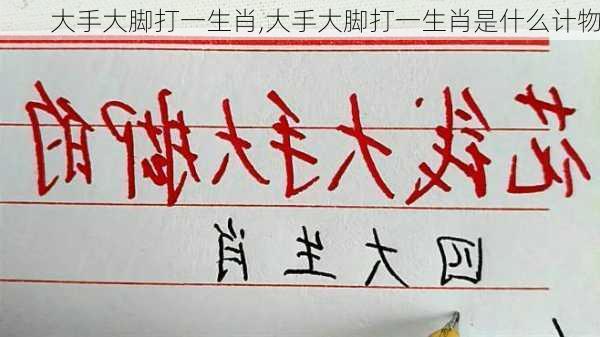 大手大脚打一生肖,大手大脚打一生肖是什么计物
花钱大手大脚的
四大生肖